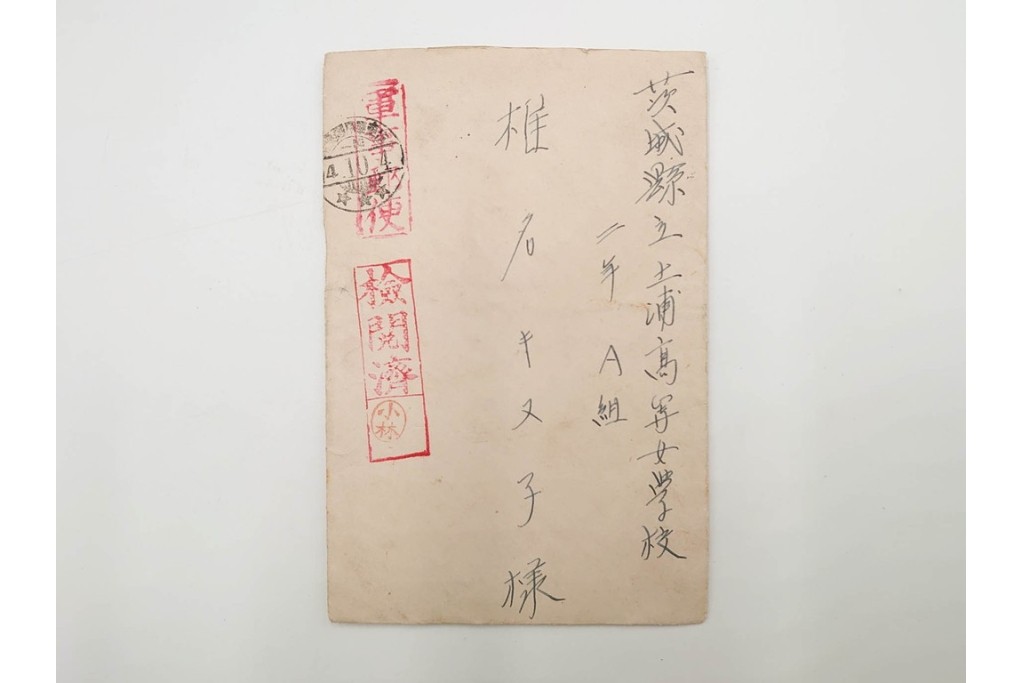 茨城縣立土浦高等女學校
二年A組
椎名キヌ子様
軍事郵便
4.10.4
検閲濟
小林